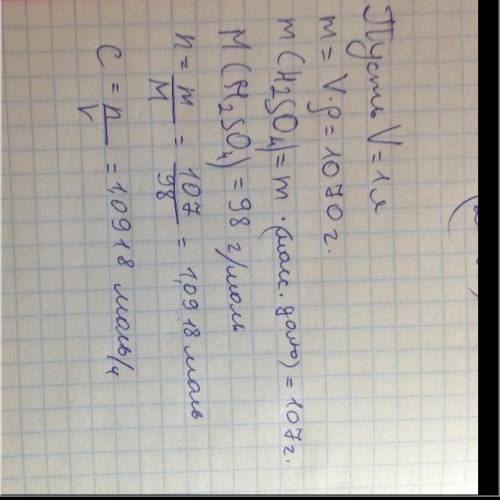 Пусть V = 1 л
m = V·ρ = 1070 г.
m (H₂SO₄) = m · (масс. долю) = 107 г.
M (H₂SO₄) = 98 г/моль
n = m/M = 107/98 = 1,0918 моль
C = n/V = 1,0918 моль/л